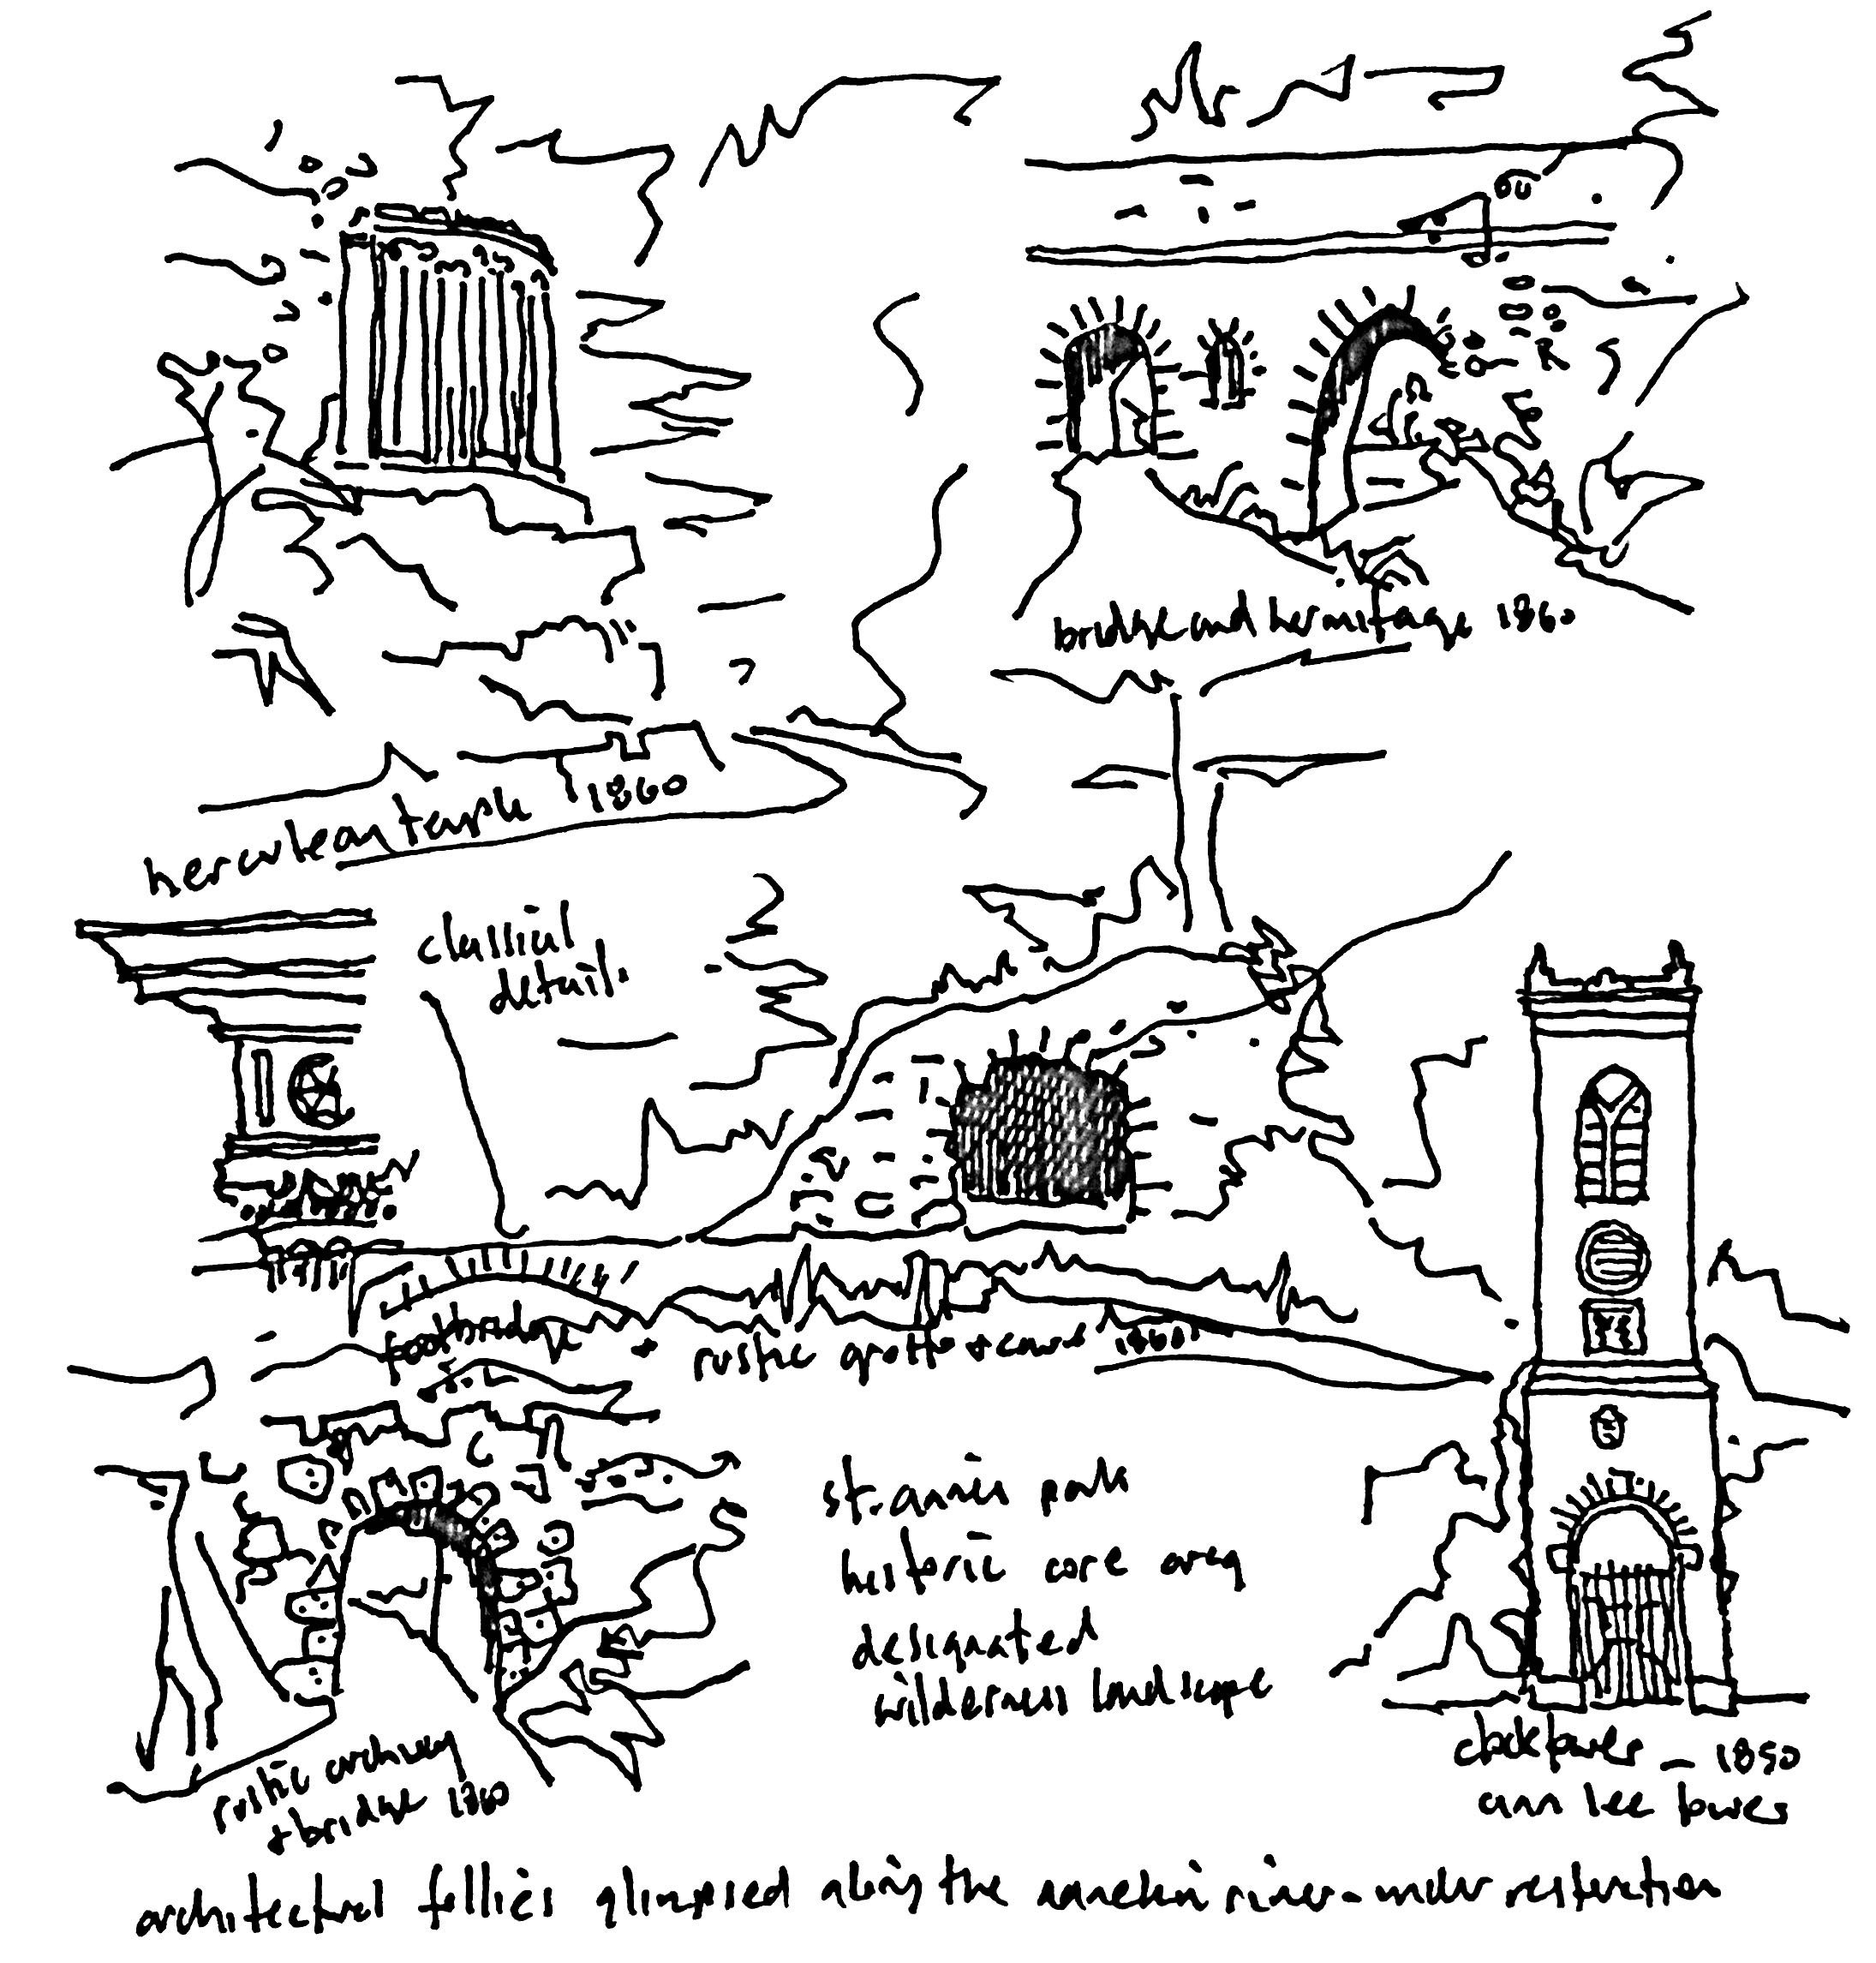 bridge and hermitage 1860
herculean temple 1860
classical
detail
footbridge + rustic grotto + caves 1860
st. annes park
historic core area
designated
wilderness landscape
rustic archway
+ bridge 1860
clocktower _ 1850
ann lee tower
architectural follies glimpsed along the nanekin river - under restoration